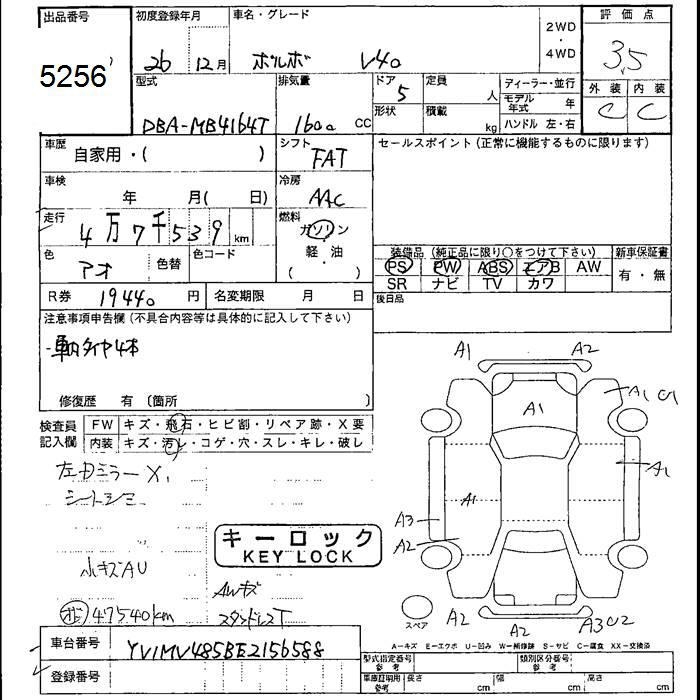 出品番号 初度登録年月 車名・グレード 2WD・4WD 評価点
5256 26 12月 ボルボ V40 3.5
型式 排気量 ドア 定員 ディーラー・並行 外装 内装
DBA-MB4164T 1600 CC 5 人 モデル年式 年 C C
形状 積載 kg ハンドル 左・右
車歴 自家用・( ) シフト FAT セールスポイント(正常に機能するものに限ります)
車検 年 月( 日) 冷房 AAC
走行 4万7千539km 燃料 ガソリン
軽・油
( )
色 アオ 色替 色コード
装備品 (純正品に限り○をつけて下さい) 新車保証書
PS PW ABS エアB AW 有・無
SR ナビ TV カワ
R券 19440円 名変期限 月 日 後日品
注意事項申告欄(不具合内容等は具体的に記入して下さい)
・車内タイヤ4本
修復歴 有 〔箇所 〕
検査員記入欄 FW キズ・飛石・ヒビ割・リペア跡・X要
内装 キズ・汚レ・コゲ・穴・スレ・キレ・破レ
左ドミラーX,
シートシミ
キーロック
KEY LOCK
小キズAU
AWキズ
47540km スタンドレスT
A1 A2
A1 A1 C1
A1 A1
A3
A2
スペア A2 A2 A3 C2
A-キズ E-エクボ U-凹み W-補修跡 S-サビ C-腐食 XX-交換済
車台番号 YV1MV485BE2156588
登録番号
型式指定番号 参考 類別区分番号 参考
車庫証明用 参考 長さ cm 幅 cm 高さ cm